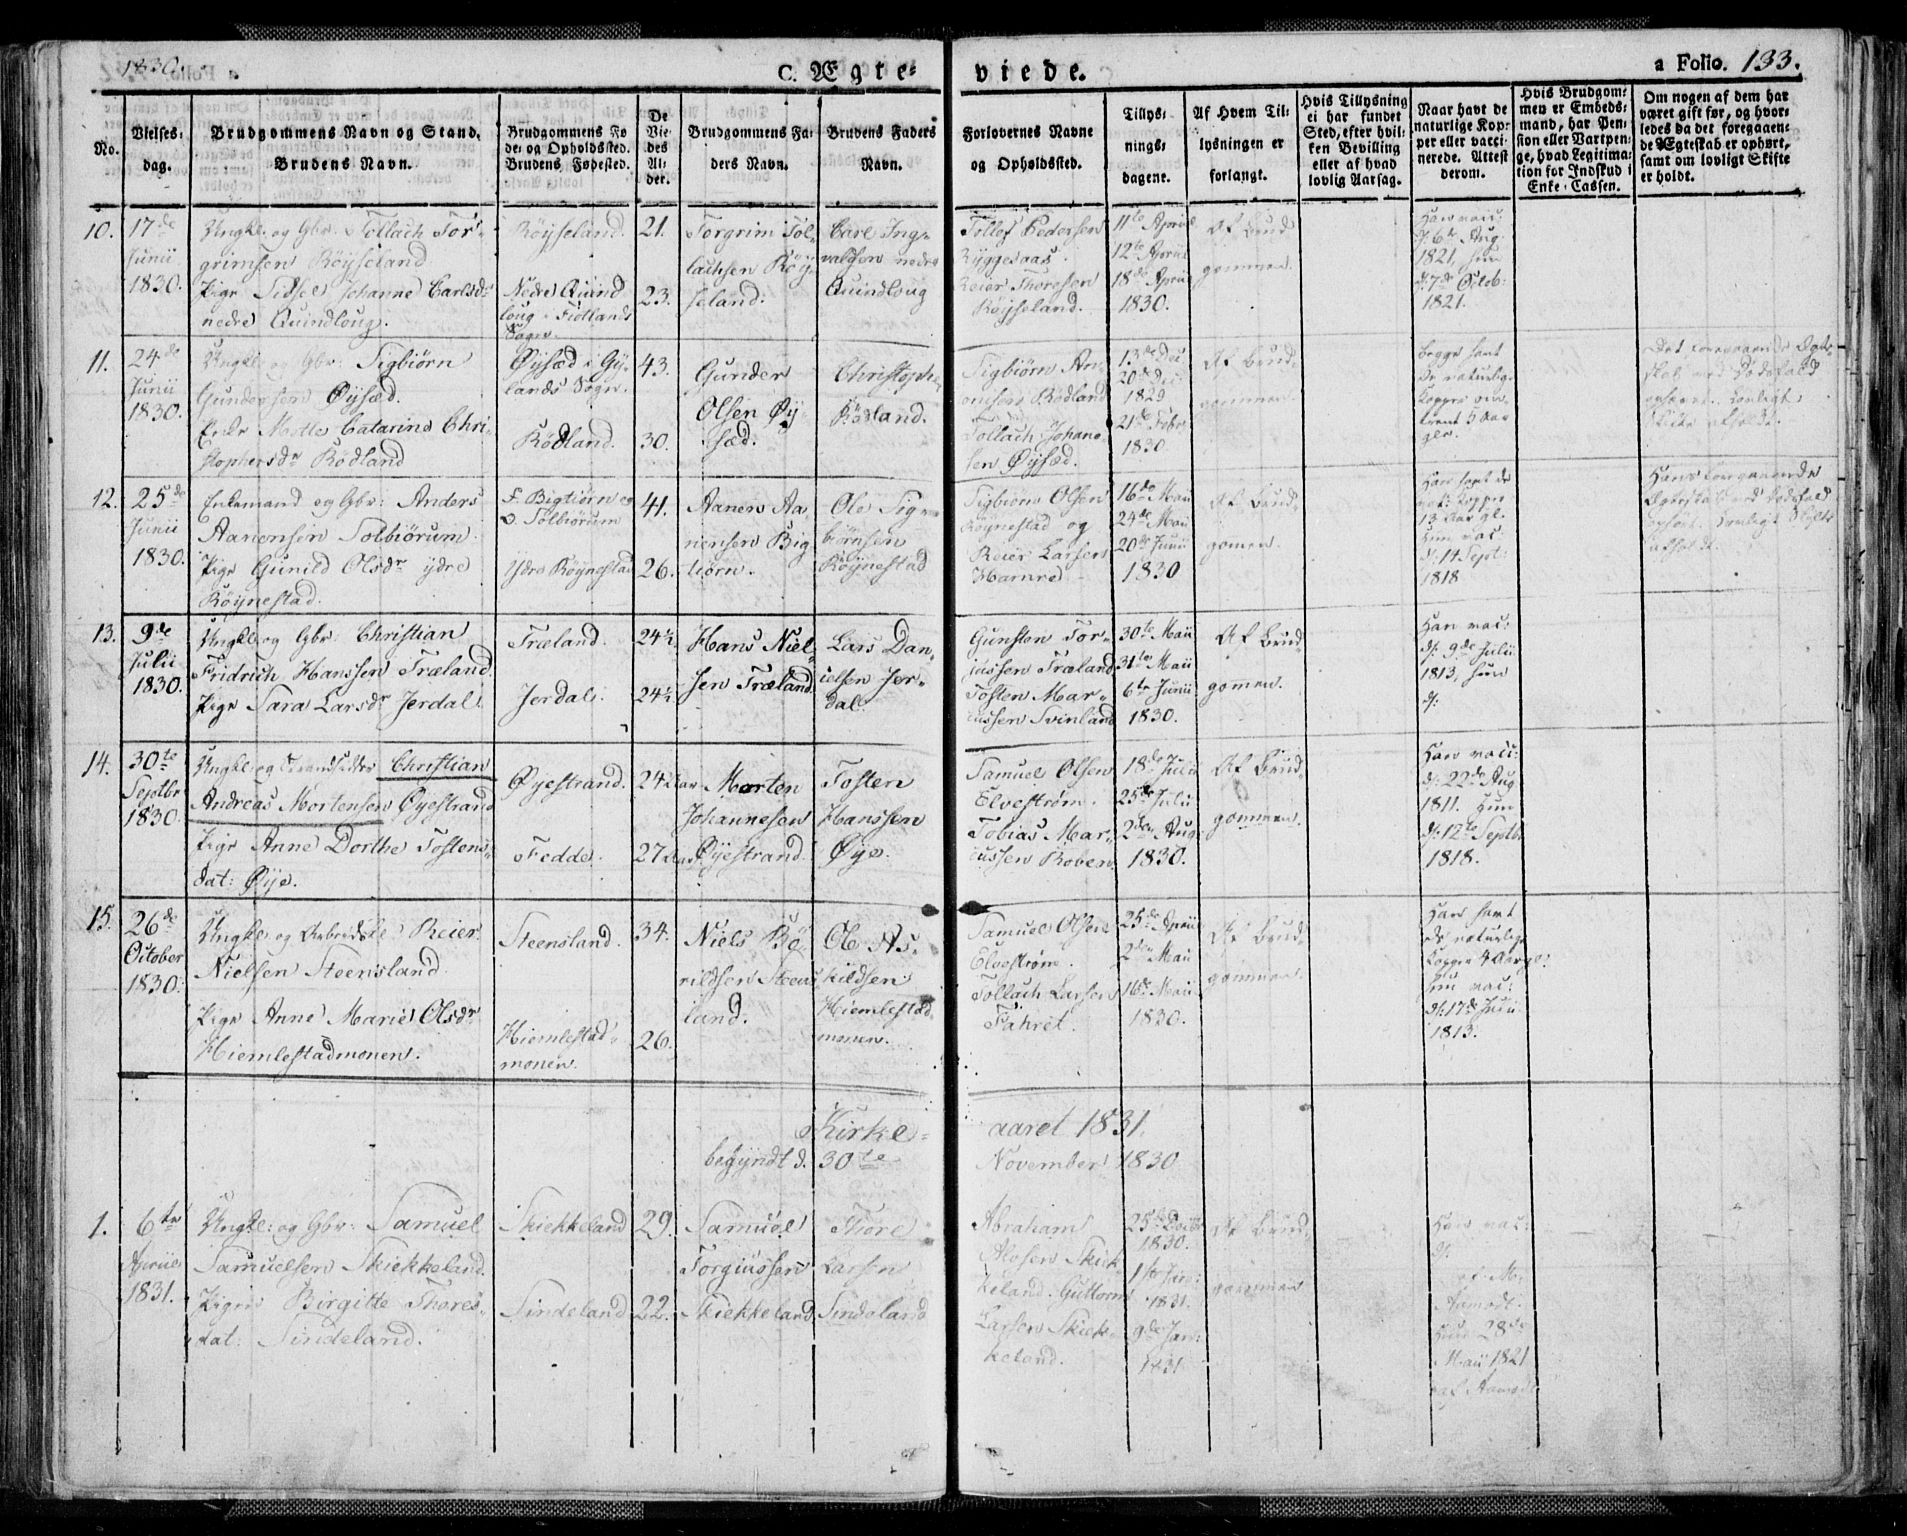 1830.
C. Ægte-
viede.
a Folio. 133.
No.
Vielses-
dag.
Brudgommens Navn og Stand.
Brudens Navn.
Brudgommens Fø
de- og Opholdssted.
Brudens Fødested.
De
Vie-
des
Al-
der.
Brudgommens Fa-
ders Navn.
Brudens Faders
Navn.
Forlovernes Navne
og Opholdssted.
Tillys-
nings-
dagene.
Af Hvem Til-
lysningen er
forlangt.
Hvis Tillysning
ei har fundet
Sted, efter hvil-
ken Bevilling
eller af hvad
lovlig Aarsag.
Naar havt de
naturlige Kop-
per eller vacci-
nerede. Attest
derom.
Hvis Brudgom-
men er Embeds-
mand, har Pen-
sion eller Vartpen-
ge, hvad Legitima-
tion for Indskud i
Enke-Cassen.
Om nogen af dem har
været gift før, og hvor-
ledes da det foregaaen-
de Ægteskab er ophørt,
samt om lovligt Skifte
er holdt.
10.
17de
Junii
1830.
Ungkl. og Gbr. Tollach Tor-
grimsen Röyseland
Pige Sidsel Johanne Carlsdr
nedre Quindloug.
Röyseland.
Nedre Quind
loug i Fiotlands
Sogn.
21.
23.
Torgrim Tol-
lachsen Röy-
seland.
Carl Ing-
valdsen nedre
Quindloug
Tollef Pedersen
Ryggesaas.
Reier Thoresen
Röyseland.
11te April
12te April
18de April
1830.
Af Brud
gommen.
Han vac:
d: 6te Aug.
1821, hun
d: 7de Octob:
1821.
11.
24de
Junii
1830.
Ungkl. og Gbr: Sigbiörn
Gundersen Øysæd.
Enke Mette Catarine Chri-
stophersdr Rödland
Øysæd i Gy-
lands Sogn.
Rödland.
43.
30.
Gunder
Olsen Øy-
sæd.
Christophe-
Rödland.
Sigbiörn An-
onsen Rödland
Tollach Johan-
sen Øysæd.
13de Dec
20de Dec:
1829
21de Febr:
1830.
Af Brud-
gommen.
Begge havt
de naturlige
Kopper om-
trent 5 Aar
gle.
12.
25de
Junii
1830.
Enkemand og Gbr: Anders
Aanensen Tolbiörum.
Pige Gunild Olsdr ydre
Röynestad.
F. Bigtiörn og
O. Tolbiörum
Ydre Röynestad
41.
26.
Aanen Aa-
nensen Big
tiörn.
Ole Sig-
biörnsen
Röynestad
Sigbiörn Olsen
Röynestad og
Reier Larsen
Hamre
16de Maii
24de Maii
20de Junii
1830
Af Brud-
gomen.
Han havt de
nat: Kopper
13 Aar gl.
Hun vac:
d: 14 Sept:
1818
Hans foregaaende
13.
9de
Julii
1830.
Ungkl. og Gbr: Christian
Fridrich Hanssen Træland.
Pige Sara Larsdr Jerdal.
Træland.
Jerdal.
24½
24½
Hans Niel-
sen Træland.
Lars Dan-
ielsen Jer-
dal.
Gunsten Tor-
jussen Træland
Tosten Mar-
cussen Svinland
30te Maii
31te Maii
6te Junii
1830.
Af Brud-
gomen.
Han vac:
d: 9de Julii
1813, hun
d:
14.
30te
Septbr
1830.
Ungkl. og Strandsidder Christian
Andreas Mortensen Øyestrand
Pige Anne Dorthe Tostens-
dat: Øye.
Øyestrand.
Fedde.
24 Aar
27 Aar
Morten
Johannesen
Øyestrand.
Tosten
Hanssen
Øye.
Samuel Olsen
Elvestrøm.
Tobias Mar-
cussen Roben
18de Julii
25de Julii
2den Aug:
1830.
Af Brud-
gommen.
Han vacc:
d: 22de Aug
1811. Hun
d: 12te Septb.
1818.
15.
26de
October
1830.
Ungkl. og Arbeidskl. Reier
Nielsen Steensland.
Pige Anne Marie Olsdr
Hiemlestadmonen.
Steensland.
Hiemlestad-
monen.
34.
26.
Niels Bö-
rildsen Steens
land.
Ole As-
kildsen
Hiemlestad-
monen.
Samuel Olsen
Elvestrøm.
Tollach Larsen
Fahret.
25de April
2den Maii
16de Maii
1830.
Af Brud-
gommen.
Han havt
de naturlige
Kopper 4 Aar gl:
hun vac:
d: 17de Junii
1813.
Kirke-
aaret 1831.
begyndt d. 30te
November 1830
1.
6te
April
1831.
Ungkl: og Gbr: Samuel
Samuelsen Skiekkeland.
Pigen Birgitte Thores-
dat: Sindeland.
Skiekkeland
Sindeland
29.
22.
Samuel
Torgiussen
Skiekkeland
Thore
Larsen
Sindeland
Abraham
Alosen Skiek-
keland. Guttorm
Larsen Skiek-
keland.
1830.
1831.
9de Jan:
1831
Af Brud-
gommen
Han vac:
d:
af Mr.
Aamodt.
Hun 28de
Maii 1821
af Aamodt